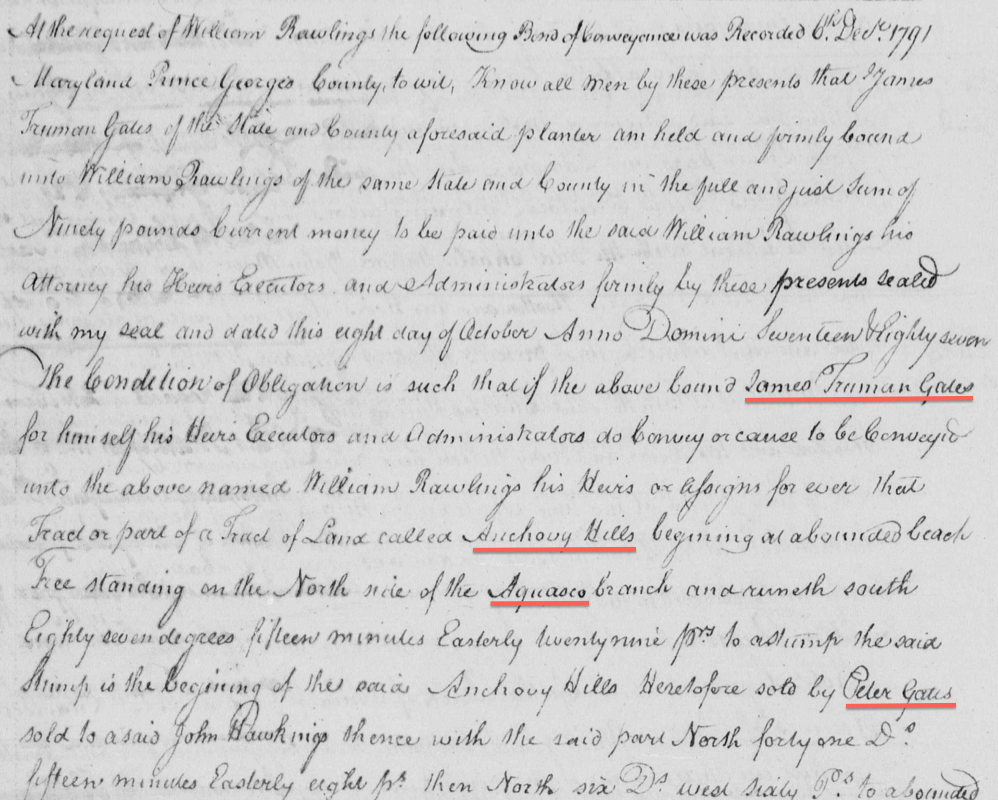 At the request of William Rawlings the following Bond of Conveyance was Recorded 6th. Decr. 1791
Maryland Prince Georges County, to wit, Know all men by these presents that I James
Truman Gates of the State and County aforesaid planter am held and firmly bound
unto William Rawlings of the same State and County in the full and just Sum of
Ninety pounds Current money to be paid unto the said William Rawlings his
Attorney his Heirs Executors and Administrators firmly by these presents sealed
with my seal and dated this eight day of October Anno Domini Seventeen & Eighty seven
The Condition of Obligation is such that if the above bound James Truman Gates
for himself his Heirs Executors and Administrators do Convey or cause to be Convey'd
unto the above named William Rawlings his Heirs or Assigns for ever that
Tract or part of a Tract of Land called Anchovy Hills begining at a bounded beach
Tree standing on the North side of the Aquasco branch and runeth south
Eighty seven degrees fifteen minutes Easterly twenty nine prs to a stump the said
Stump is the begining of the said Anchovy Hills Heretofore sold by Peter Gates
sold to a said John Hawkings thence with the said part North forty one Do.
fifteen minutes Easterly eight ps. then North six Ds. west sixty Ps. to a bounded